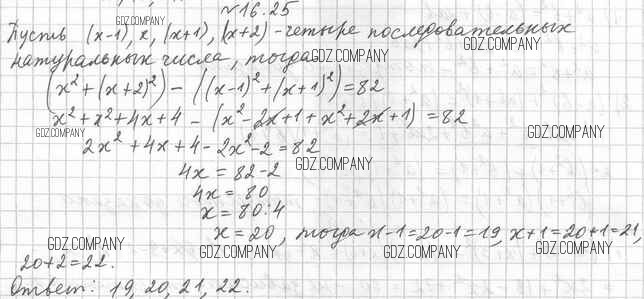 №16.25
GDZ.COMPANY
Пусть (x-1), x, (x+1), (x+2) - четыре последовательных
GDZ.COMPANY
натуральных числа, тогда
GDZ.COMPANY
(x²+(x+2)²) - ((x-1)²+(x+1)²)=82
x²+x²+4x+4 - (x²-2x+1+x²+2x+1) =82
GDZ.COMPANY
GDZ.COMPANY
2x²+4x+4-2x²-2=82
GDZ.COMPANY
4x = 82-2
4x = 80
x = 80:4
x = 20, тогда x-1=20-1=19, x+1=20+1=21,
GDZ.COMPANY
GDZ.COMPANY
GDZ.COMPANY
GDZ.COMPANY
20+2=22.
Ответ: 19, 20, 21, 22.